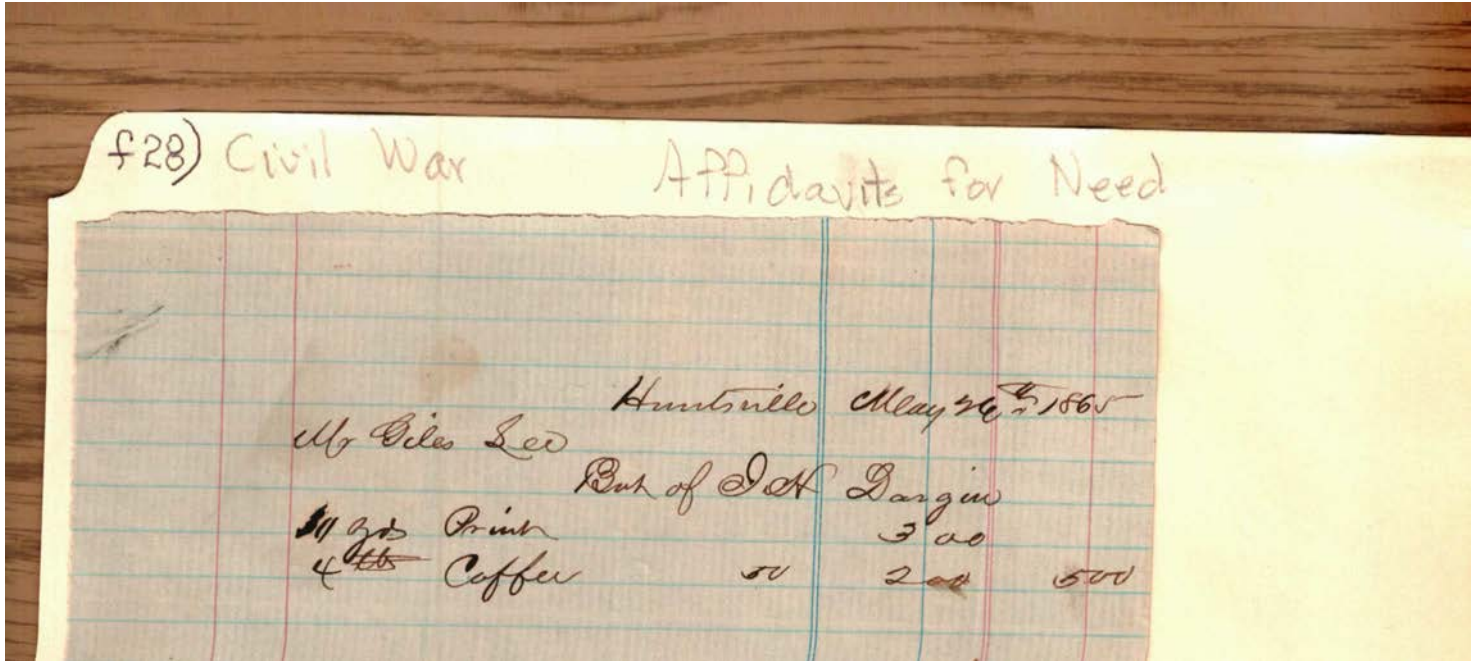 f28) Civil War Affidavits for Need
Huntsville May 26th 1865
Mr Giles Lee
Bot of I H Dargin
yds Print 3 00
4 lbs Coffee 50 2 00 5 00